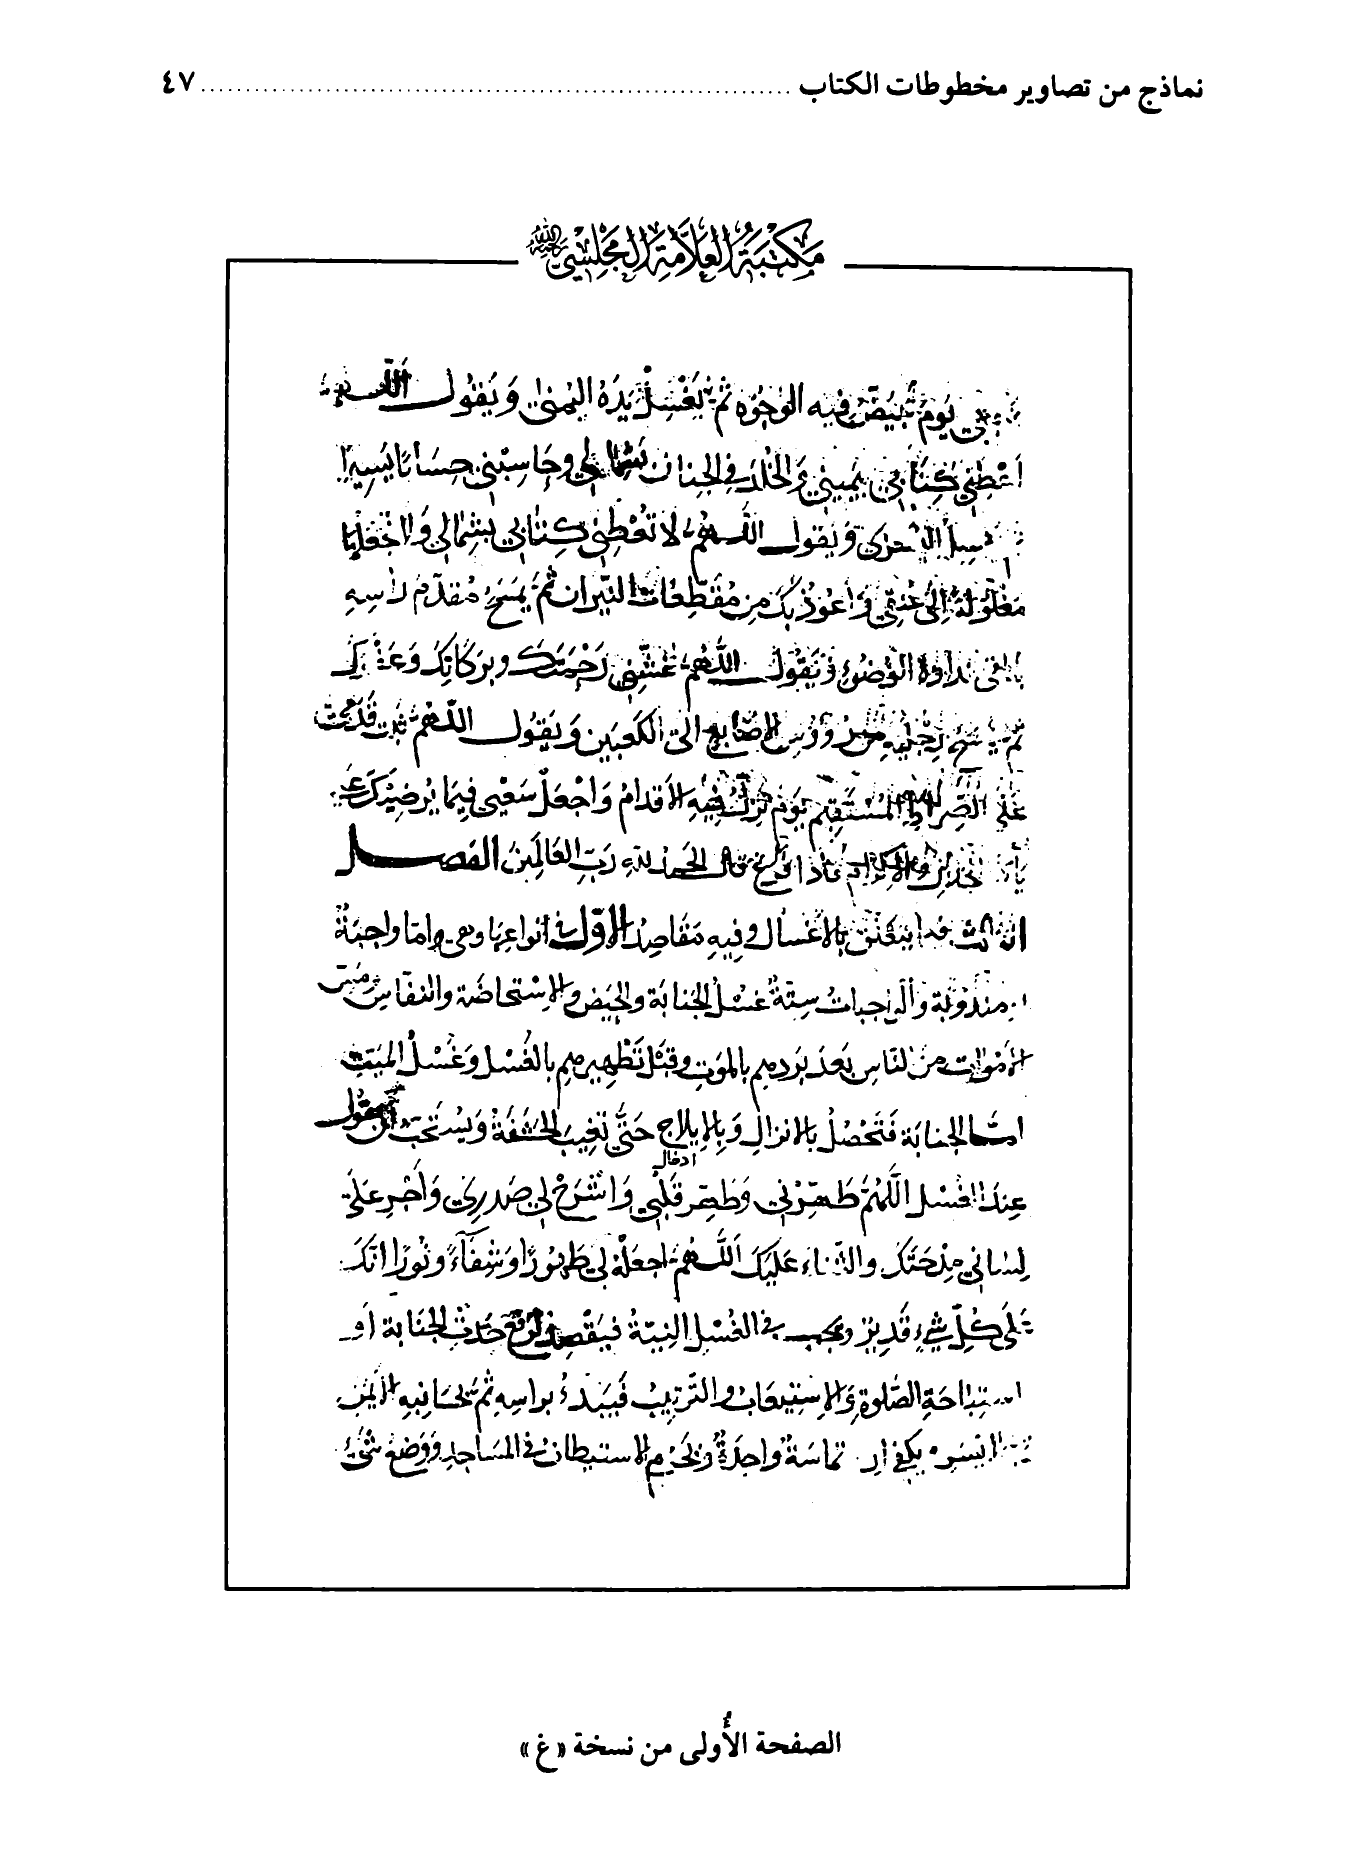 نماذج من تصاوير مخطوطات الكتاب ........ ٤٧
مَكتَبَةُ العَلّامَةِ المَجلِسي
يَوْمَ تَبْيَضُّ فيه الوُجُوه ثُمَّ يَغْسِلُ يَدَهُ اليُمنىٰ وَ يَقُول اللّهم
اَعْطِني كِتَابي بِيَميني وَ الخُلدَ في الجنان بِشِمالي وحَاسِبْني حِسَابًا يَسيرا
وَ يقول اللّهُمَّ لا تُعْطِني كِتٰابي بشِمٰالي وَلا تَجْعَلْها
مَغْلُولَةً اِلىٰ عُنقي وَ اَعُوذ بِكَ مِن مُقَطّعات النّيران ثُمَّ يَمسَحُ مُقدّم رأسِهِ
نداوة الوُضُوء وَ يَقُول اللّهُمَّ غَشِّني رَحْمَتَك وبرَكَاتِكَ وَ عَفْوك
ثم يمسَح رِجْلَيهِ من رؤس الاصٰابع الى الكَعبَين وَ يَقُول اللّهُمَّ ثَبّت قَدَمَيّ
عَلَى الصّراط المُسْتَقيم يَوْم تَزِلّ فيهِ الأقدامُ وَ اجْعَل سَعْيي فيمَا يُرضِيكَ عَنّي
يا ذا الجلال والاكرام فاذا فرغ قال الحَمد للّه رَبِّ العَالَمِينَ الفصل
الثالث فيما يتعَلّق بالاَغسال وفيهِ مَقَاصِد الاوّل في انواعِها وهي اِمّا واجبَةٌ
او مندُوبة والواجبات سِتّةٌ غسْل الجَنابة والحَيض والاِسْتحاضَة والنفَاس ومَسّ
الأمْوات من النّاس بَعدَ بَردهِم بالموَت وقَبْل تَطْهيرهِم بالغُسْل وَ غُسْلُ المَيّت
امّا الجنابَة فَتَحْصُلُ بالانزالِ وَ بِالإيلاج حَتّى تَغيبَ الحَشَفَة وَ يُسْتَحَبّ ان يقول
ادخال
عِندَ الغُسْل اللّهُمَّ طَهّرْني وَ طَهّر قَلْبي وَ اشْرَحْ لي صَدري وَ اَجْرِ عَلىٰ
لِسٰاني مِدْحَتَكَ والثّناء عَلَيكَ اللّهُمَّ اجعَلْهُ لي طَهُورًا وَ شِفَآءً و نُورًا انّكَ
عَلَى كُلّ شَيْءٍ قَديرٌ ويجب في الغُسْل النِيّةُ فيَقْصد رَفع حَدَث الجَنابة أو
استباحَةِ الصّلوة وَ الاِستيعَاب والتّرتيبُ فَيَبْدَءُ برأسِه ثُمَّ بجَانبِهِ الأيْمَنِ
ثمّ الايسَر و يكفي ارتماسَةٌ واحِدَةٌ و يَحْرُم الاستيطانُ في المَسَاجِدِ وَ وَضعُ شَيْءٍ
الصفحة الأُولى من نسخة « غ »